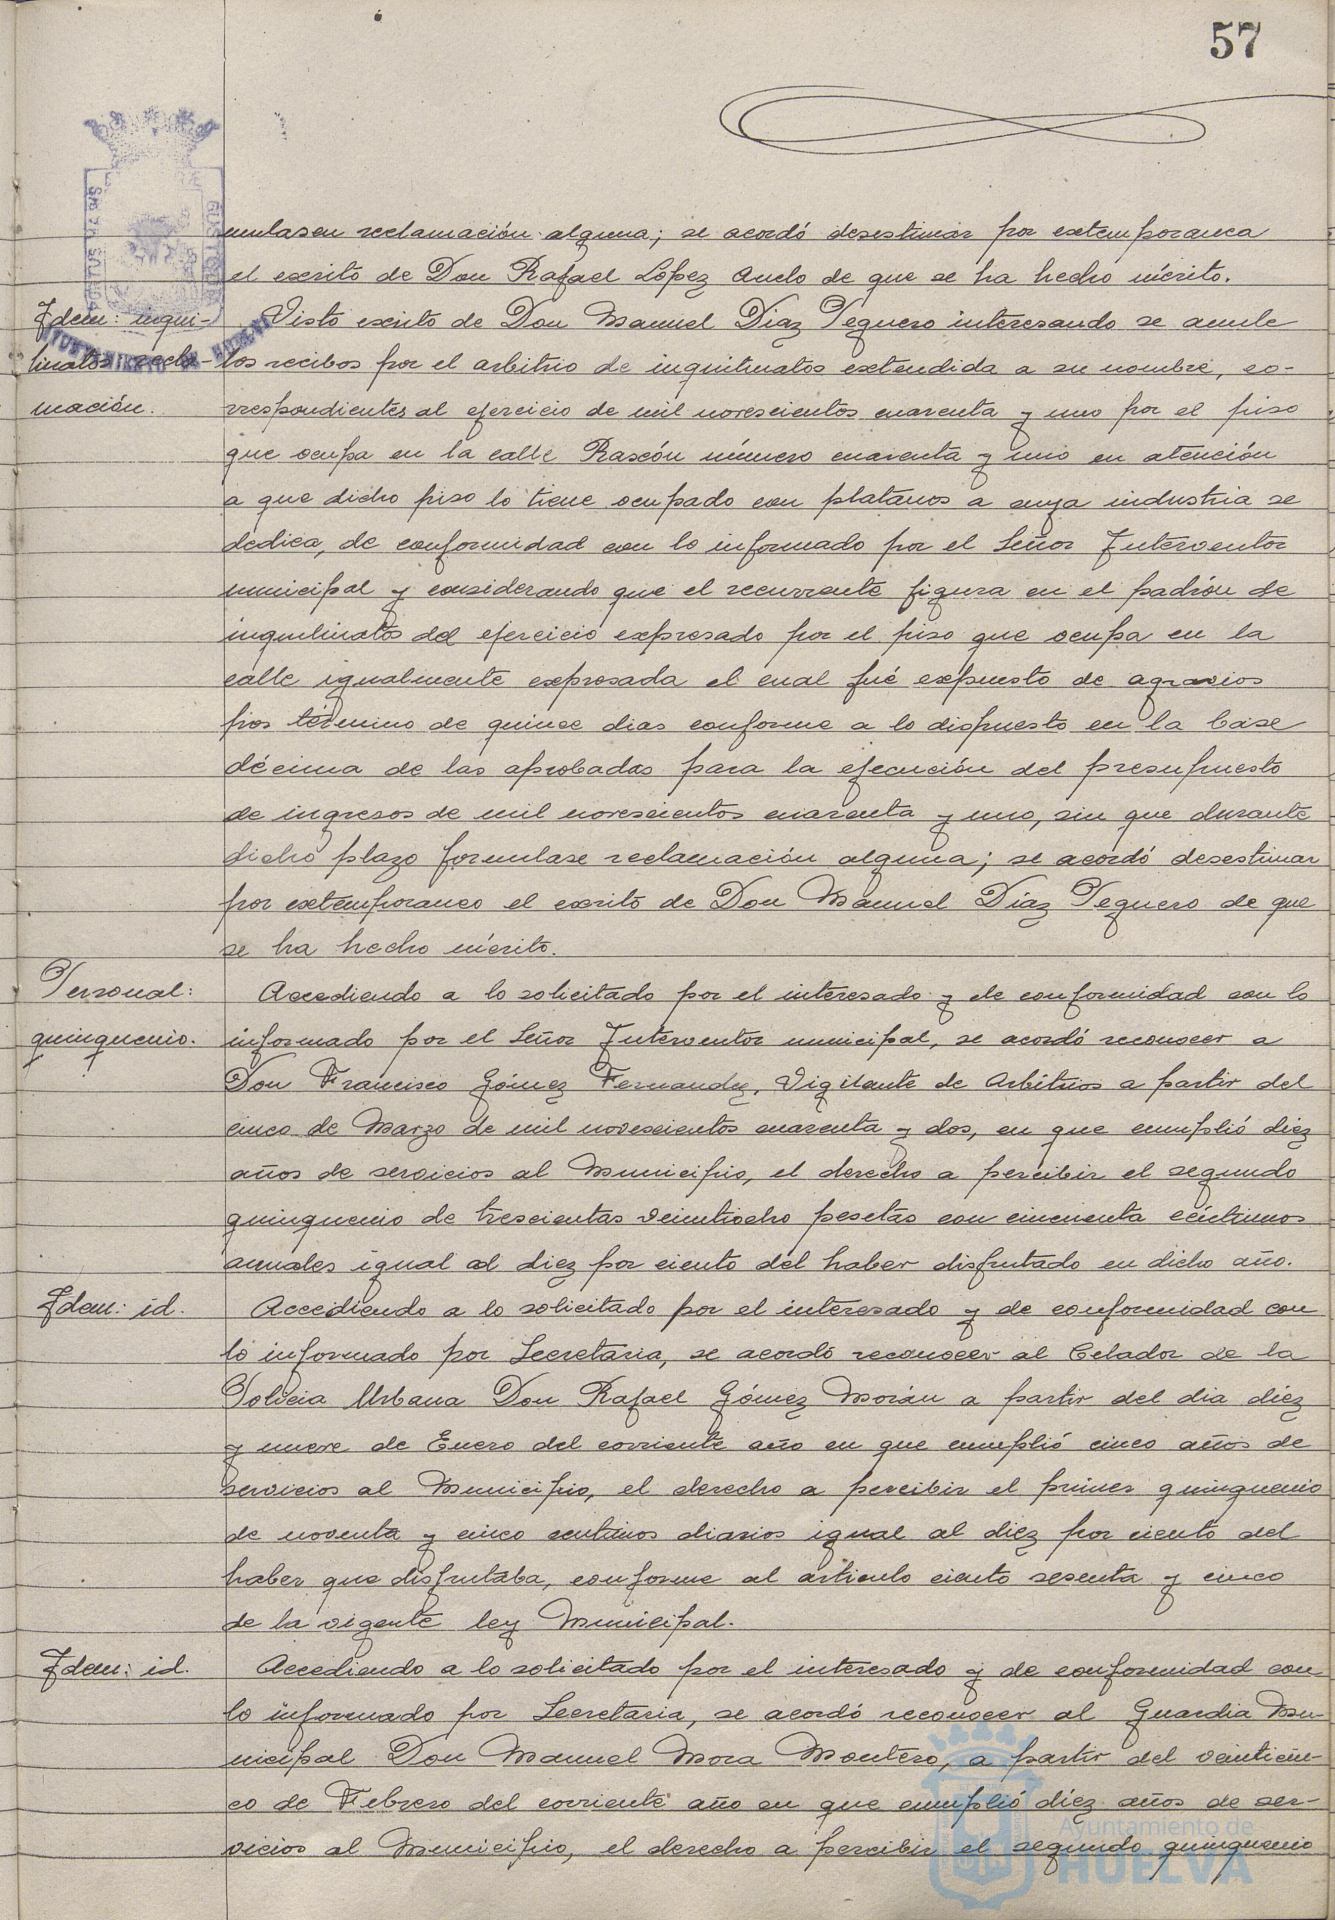 57
mulasen reclamación alguna; se acordó desestimar por extemporanea
el escrito de Don Rafael López Anelo de que se ha hecho mérito.
Idem: inqui-
linatos recla-
mación.
Visto escrito de Don Manuel Díaz Peguero interesando se anule
los recibos por el arbitrio de inquilinatos extendida a su nombre, co-
rrespondientes al ejercicio de mil novescientos cuarenta y uno por el piso
que ocupa en la calle Rascón número cuarenta y uno en atención
a que dicho piso lo tiene ocupado con platanos a cuya industria se
dedica, de conformidad con lo informado por el Señor Interventor
municipal y considerando que el recurrente figura en el padrón de
inquilinatos del ejercicio expresado por el piso que ocupa en la
calle igualmente expresada el cual fué expuesto de agravios
por término de quince dias conforme a lo dispuesto en la base
décima de las aprobadas para la ejecución del presupuesto
de ingresos de mil novescientos cuarenta y uno, sin que durante
dicho plazo formulase reclamación alguna; se acordó desestimar
por extemporaneo el escrito de Don Manuel Díaz Peguero de que
se ha hecho mérito.
Personal:
quinquenio.
Accediendo a lo solicitado por el interesado y de conformidad con lo
informado por el Señor Interventor municipal, se acordó reconocer a
Don Francisco Gómez Fernandez, Vigilante de Arbitrios a partir del
cinco de Marzo de mil novescientos cuarenta y dos, en que cumplió diez
años de servicios al Municipio, el derecho a percibir el segundo
quinquenio de trescientas veintiocho pesetas con cincuenta céntimos
anuales igual al diez por ciento del haber disfrutado en dicho año.
Idem: id.
Accediendo a lo solicitado por el interesado y de conformidad con
lo informado por Secretaria, se acordó reconocer al Celador de la
Policia Urbana Don Rafael Gómez Morán a partir del dia diez
y nueve de Enero del corriente año en que cumplió cinco años de
servicios al Municipio, el derecho a percibir el primer quinquenio
de noventa y cinco centimos diarios igual al diez por ciento del
haber que disfrutaba, conforme al articulo ciento sesenta y cinco
de la vigente ley Municipal.
Idem: id.
Accediendo a lo solicitado por el interesado y de conformidad con
lo informado por Secretaria, se acordó reconocer al Guardia Mu-
nicipal Don Manuel Mora Montero, a partir del veinticin-
co de Febrero del corriente año en que cumplió diez años de ser-
vicios al Municipio, el derecho a percibir el segundo quinquenio
Ayuntamiento de
HUELVA